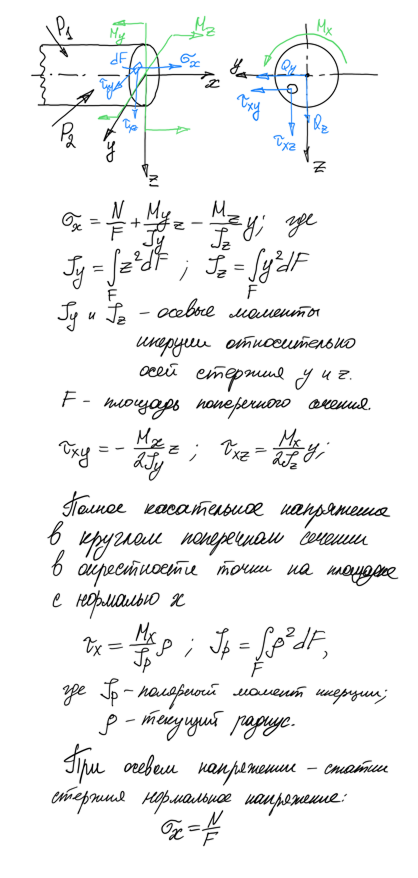 P₁ M_y M_z M_x
dF σ_x y Q_y
τ_y x τ_xy
P₂ τ_z Q_z
y τ_xz
z z
σ_x = N/F + M_y/J_y z − M_z/J_z y; где
J_y = ∫_F z²dF ; J_z = ∫_F y²dF
J_y и J_z – осевые моменты
инерции относительно
осей стержня y и z.
F – площадь поперечного сечения.
τ_xy = − M_x/2J_y z ; τ_xz = M_x/2J_z y;
Полное касательное напряжение
в круглом поперечном сечении
в окрестности точки на площадке
с нормалью x
τ_x = M_x/J_p ρ ; J_p = ∫_F ρ²dF,
где J_p – полярный момент инерции;
ρ – текущий радиус.
При осевом напряжении – сжатии
стержня нормальное напряжение:
σ_x = N/F